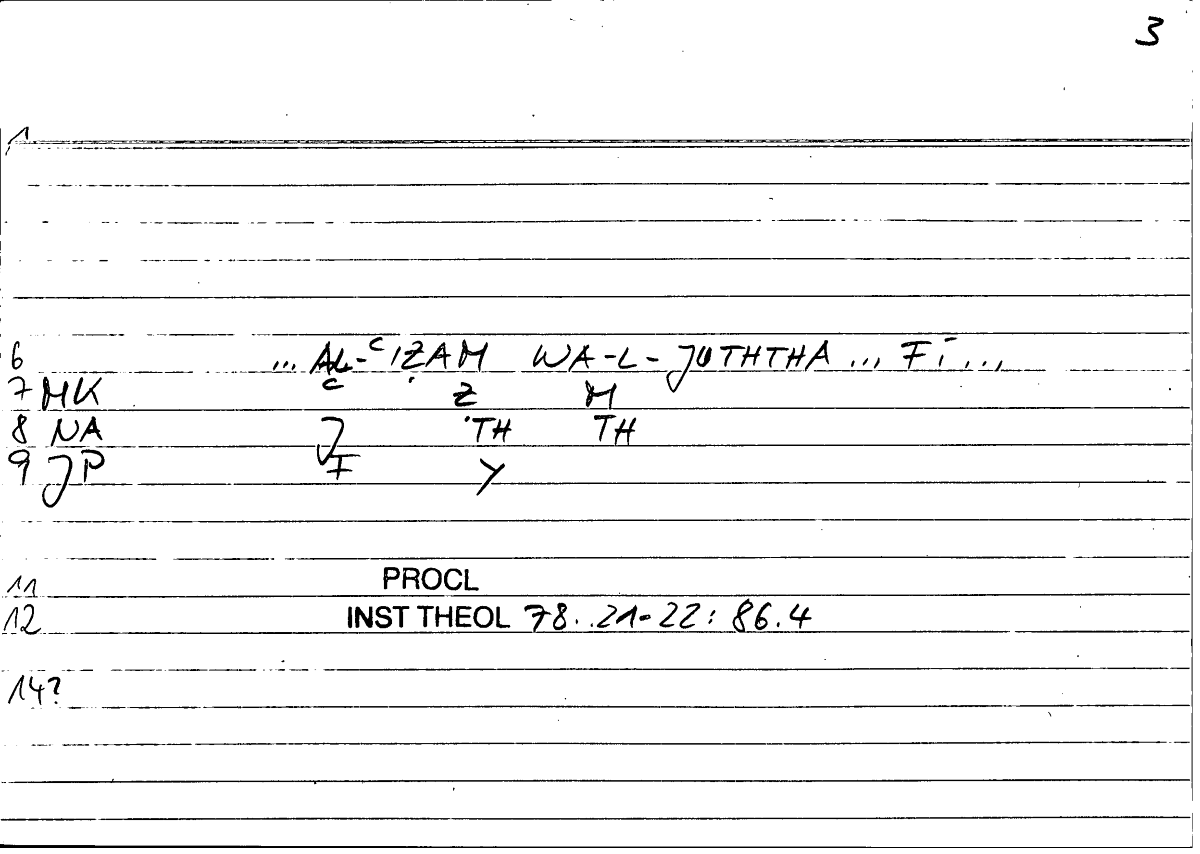 3
1
6 ... AL-ʿIẒAM WA-L-JUTHTHA ... FĪ ...
7 MK ʿ Ẓ M
8 NA J TH TH
9 JP F Y
11 PROCL
12 INST THEOL 78. 21-22: 86.4
14?